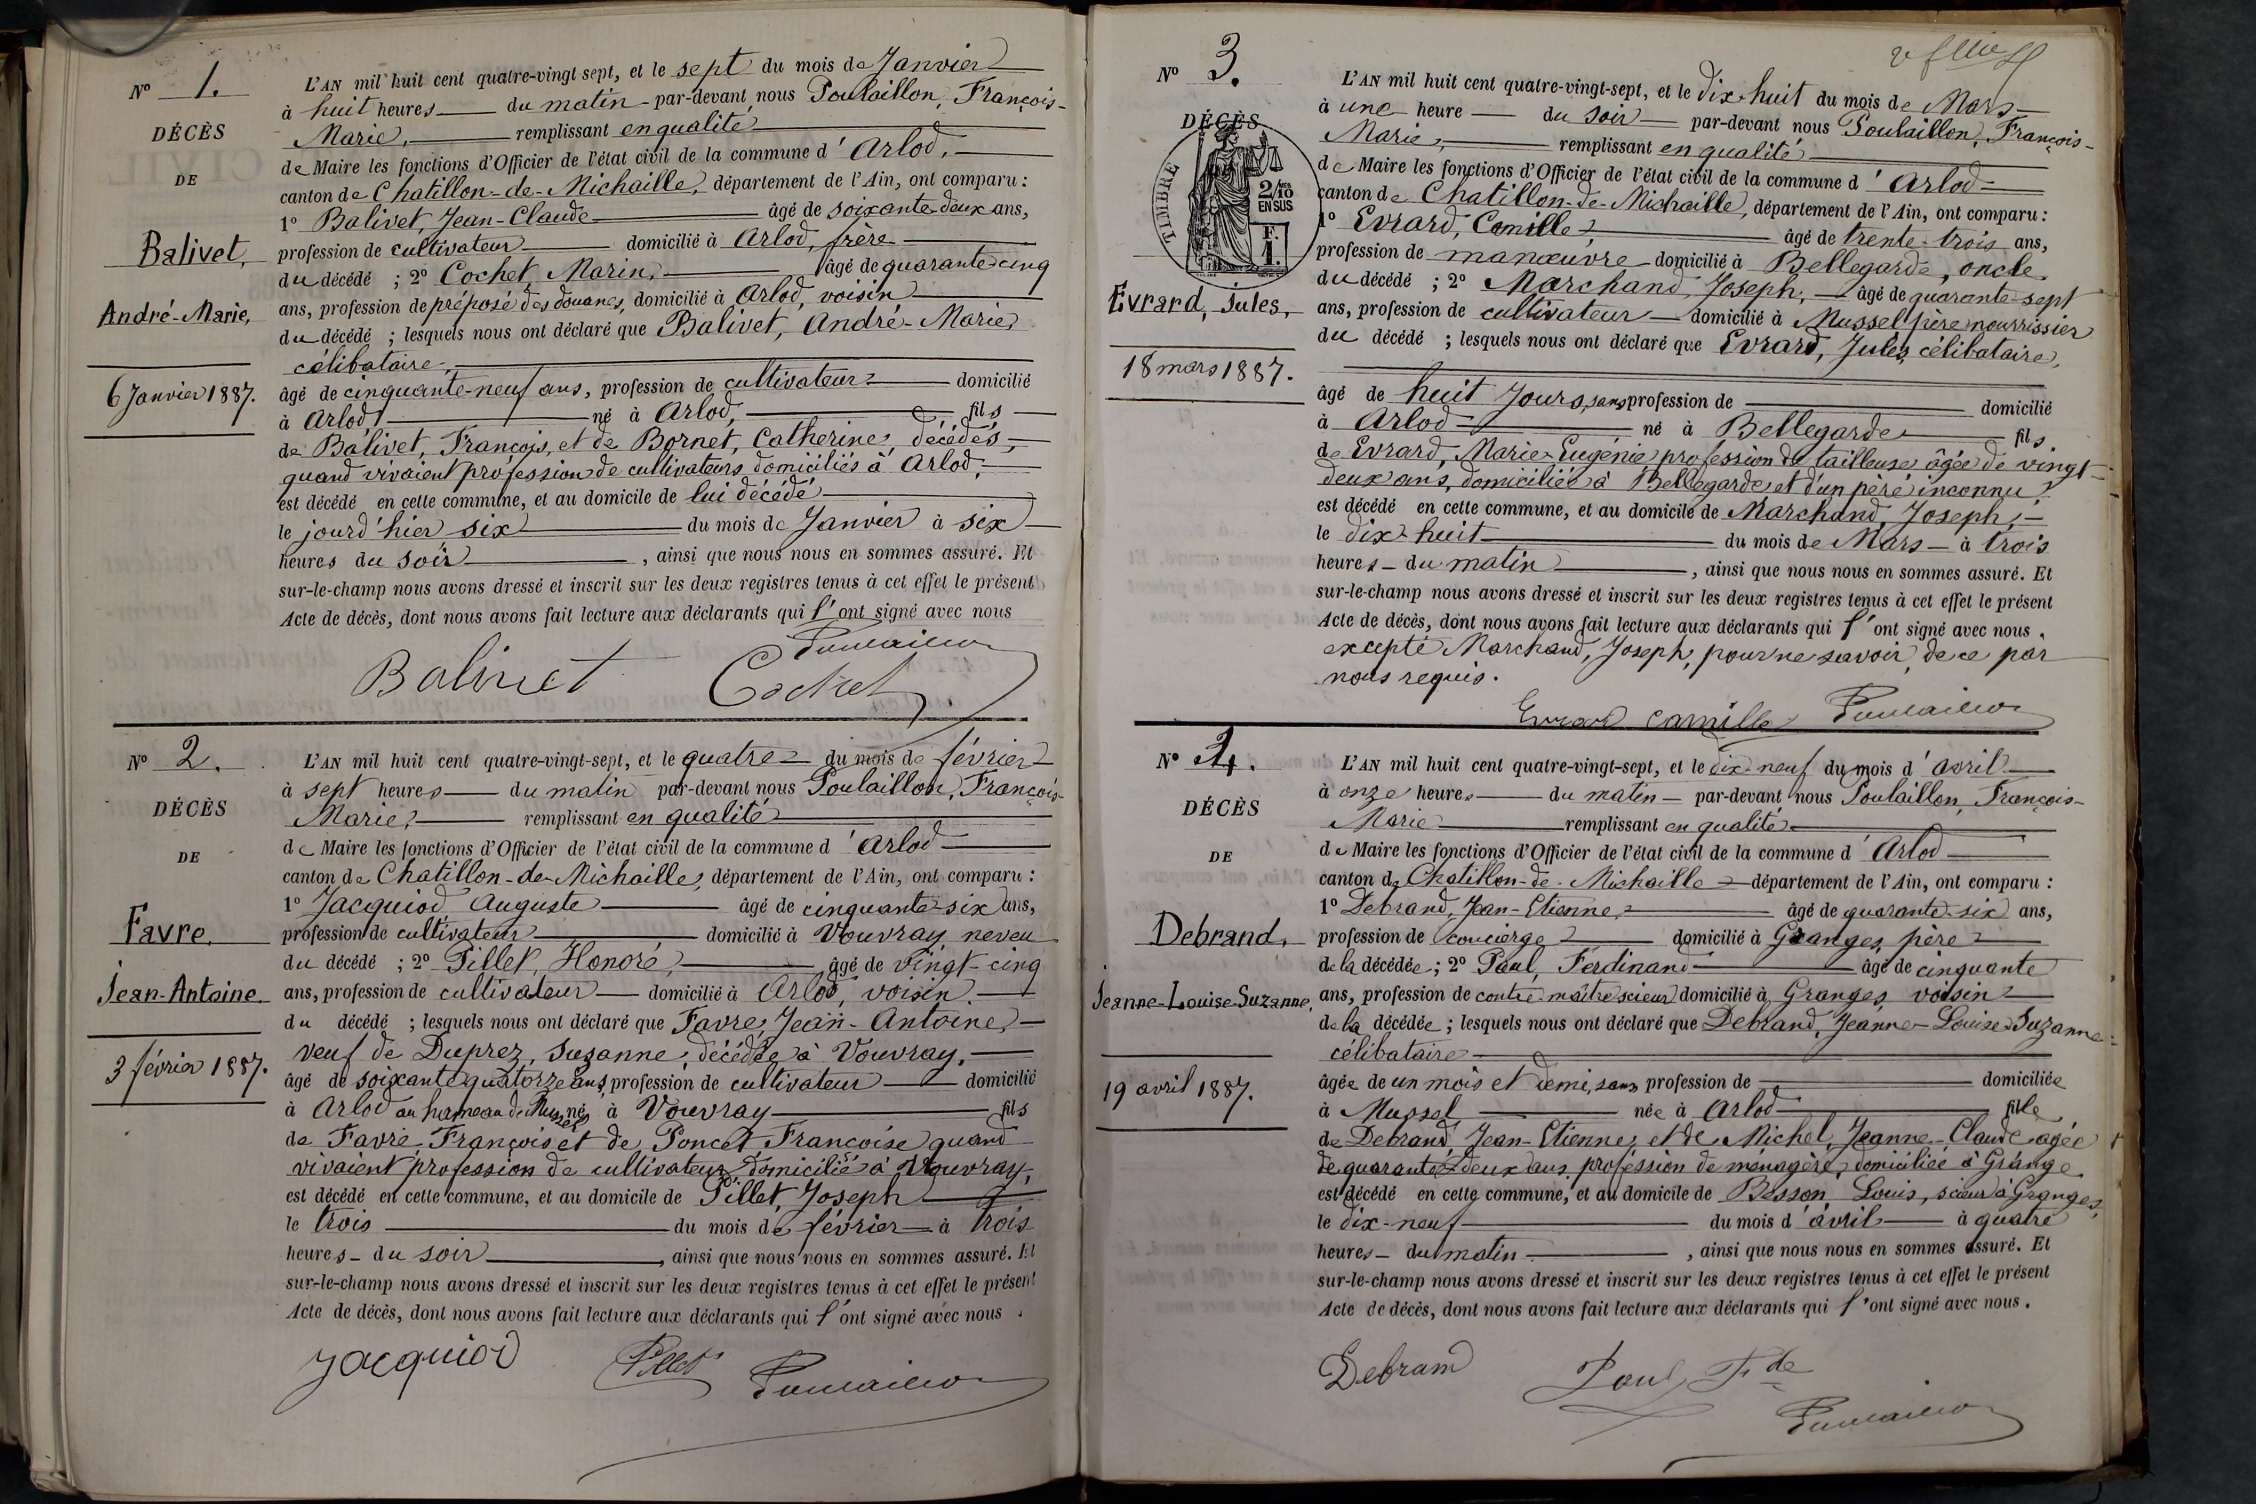 N° 1.
DÉCÈS
DE
Balivet,
André-Marie,
6 Janvier 1887.
L'AN mil huit cent quatre-vingt sept, et le sept du mois de Janvier
à huit heures du matin par-devant nous Poulaillon, François-
Marie, remplissant en qualité
de Maire les fonctions d'Officier de l'état civil de la commune d'Arlod,
canton de Chatillon-de-Michaille, département de l'Ain, ont comparu :
1° Balivet, Jean-Claude âgé de soixante-deux ans,
profession de cultivateur domicilié à Arlod, frère
du décédé ; 2° Cochet, Marin, âgé de quarante-cinq
ans, profession de préposé des douanes, domicilié à Arlod, voisin
du décédé ; lesquels nous ont déclaré que Balivet, André-Marie,
célibataire,
âgé de cinquante-neuf ans, profession de cultivateur domicilié
à Arlod né à Arlod, fils
de Balivet, François, et de Bornet, Catherine, décédés,
quand vivaient profession de cultivateurs domiciliés à Arlod,
est décédé en cette commune, et au domicile de lui décédé
le jourd'hier six du mois de Janvier à six
heures du soir, ainsi que nous nous en sommes assuré. Et
sur-le-champ nous avons dressé et inscrit sur les deux registres tenus à cet effet le présent
Acte de décès, dont nous avons fait lecture aux déclarants qui l'ont signé avec nous
Poulaillon
Balivet Cochet
N° 2.
DÉCÈS
DE
Favre,
Jean-Antoine.
3 février 1887.
L'AN mil huit cent quatre-vingt-sept, et le quatre du mois de février
à sept heures du matin par-devant nous Poulaillon, François-
Marie, remplissant en qualité
de Maire les fonctions d'Officier de l'état civil de la commune d'Arlod
canton de Chatillon-de-Michaille, département de l'Ain, ont comparu :
1° Jacquiod Auguste âgé de cinquante-six ans,
profession de cultivateur domicilié à Vouvray neveu
du décédé ; 2° Pillet, Honoré, âgé de vingt-cinq
ans, profession de cultivateur domicilié à Arlod, voisin.
du décédé ; lesquels nous ont déclaré que Favre, Jean-Antoine,
veuf de Duprez, Suzanne, décédée à Vouvray,
âgé de soixante quatorze ans, profession de cultivateur domicilié
à Arlod au hameau de Mussel né à Vouvray fils
de Favre, François et de Poncet Françoise quand
vivaient profession de cultivateurs domiciliés à Vouvray,
est décédé en cette commune, et au domicile de Pillet, Joseph
le trois du mois de février à trois
heures du soir, ainsi que nous nous en sommes assuré. Et
sur-le-champ nous avons dressé et inscrit sur les deux registres tenus à cet effet le présent
Acte de décès, dont nous avons fait lecture aux déclarants qui l'ont signé avec nous.
Jacquiod Pillet Poulaillon
N° 3.
DÉCÈS
TIMBRE
2/10
EN SUS
F.
1.
Evrard, Jules,
18 mars 1887.
L'AN mil huit cent quatre-vingt-sept, et le dix-huit du mois de Mars
à une heure du soir par-devant nous Poulaillon, François-
Marie, remplissant en qualité
de Maire les fonctions d'Officier de l'état civil de la commune d'Arlod
canton de Chatillon-de-Michaille, département de l'Ain, ont comparu :
1° Evrard, Camille, âgé de trente-trois ans,
profession de manœuvre domicilié à Bellegarde, oncle
du décédé ; 2° Marchand, Joseph, âgé de quarante-sept
ans, profession de cultivateur domicilié à Mussel père nourrissier
du décédé ; lesquels nous ont déclaré que Evrard, Jules, célibataire,
âgé de huit Jours, sans profession de domicilié
à Arlod né à Bellegarde fils
de Evrard, Marie-Eugénie profession de tailleuse âgée de vingt-
deux ans, domiciliée à Bellegarde et d'un père inconnu,
est décédé en cette commune, et au domicile de Marchand, Joseph,
le dix-huit du mois de Mars à trois
heures du matin, ainsi que nous nous en sommes assuré. Et
sur-le-champ nous avons dressé et inscrit sur les deux registres tenus à cet effet le présent
Acte de décès, dont nous avons fait lecture aux déclarants qui l'ont signé avec nous,
excepté Marchand, Joseph, pour ne savoir, de ce par
nous requis.
Evrard Camille Poulaillon
N° 4.
DÉCÈS
DE
Debrand,
Jeanne-Louise-Suzanne,
19 avril 1887.
L'AN mil huit cent quatre-vingt-sept, et le dix-neuf du mois d'avril
à onze heures du matin par-devant nous Poulaillon, François-
Marie remplissant en qualité
de Maire les fonctions d'Officier de l'état civil de la commune d'Arlod
canton de Chatillon-de-Michaille département de l'Ain, ont comparu :
1° Debrand, Jean-Etienne, âgé de quarante-six ans,
profession de concierge domicilié à Granges, père
de la décédée ; 2° Paul, Ferdinand âgé de cinquante
ans, profession de contre maître scieur domicilié à Granges voisin
de la décédée ; lesquels nous ont déclaré que Debrand, Jeanne-Louise-Suzanne
célibataire
âgée de un mois et demi, sans profession de domiciliée
à Mussel née à Arlod fille
de Debrand, Jean-Etienne, et de Michel, Jeanne-Claude agée
de quarante-deux ans profession de ménagère, domiciliée à Grange
est décédé en cette commune, et au domicile de Besson Louis, scieur à Granges,
le dix-neuf du mois d'avril à quatre
heures du matin, ainsi que nous nous en sommes assuré. Et
sur-le-champ nous avons dressé et inscrit sur les deux registres tenus à cet effet le présent
Acte de décès, dont nous avons fait lecture aux déclarants qui l'ont signé avec nous.
Debrand Paul Fde
Poulaillon